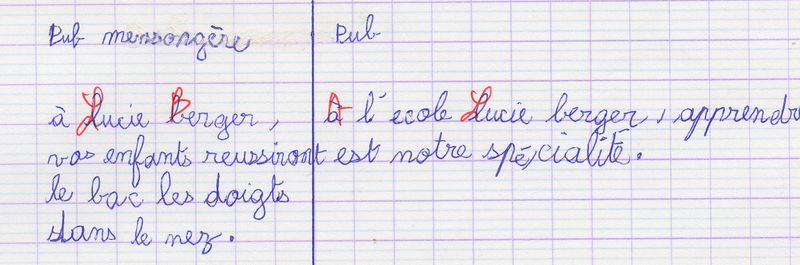 Pub mensongère
à Lucie Berger,
vos enfants reussiront
le bac les doigts
dans le nez.
Pub
A l'ecole Lucie berger, apprendre
est notre spécialité.